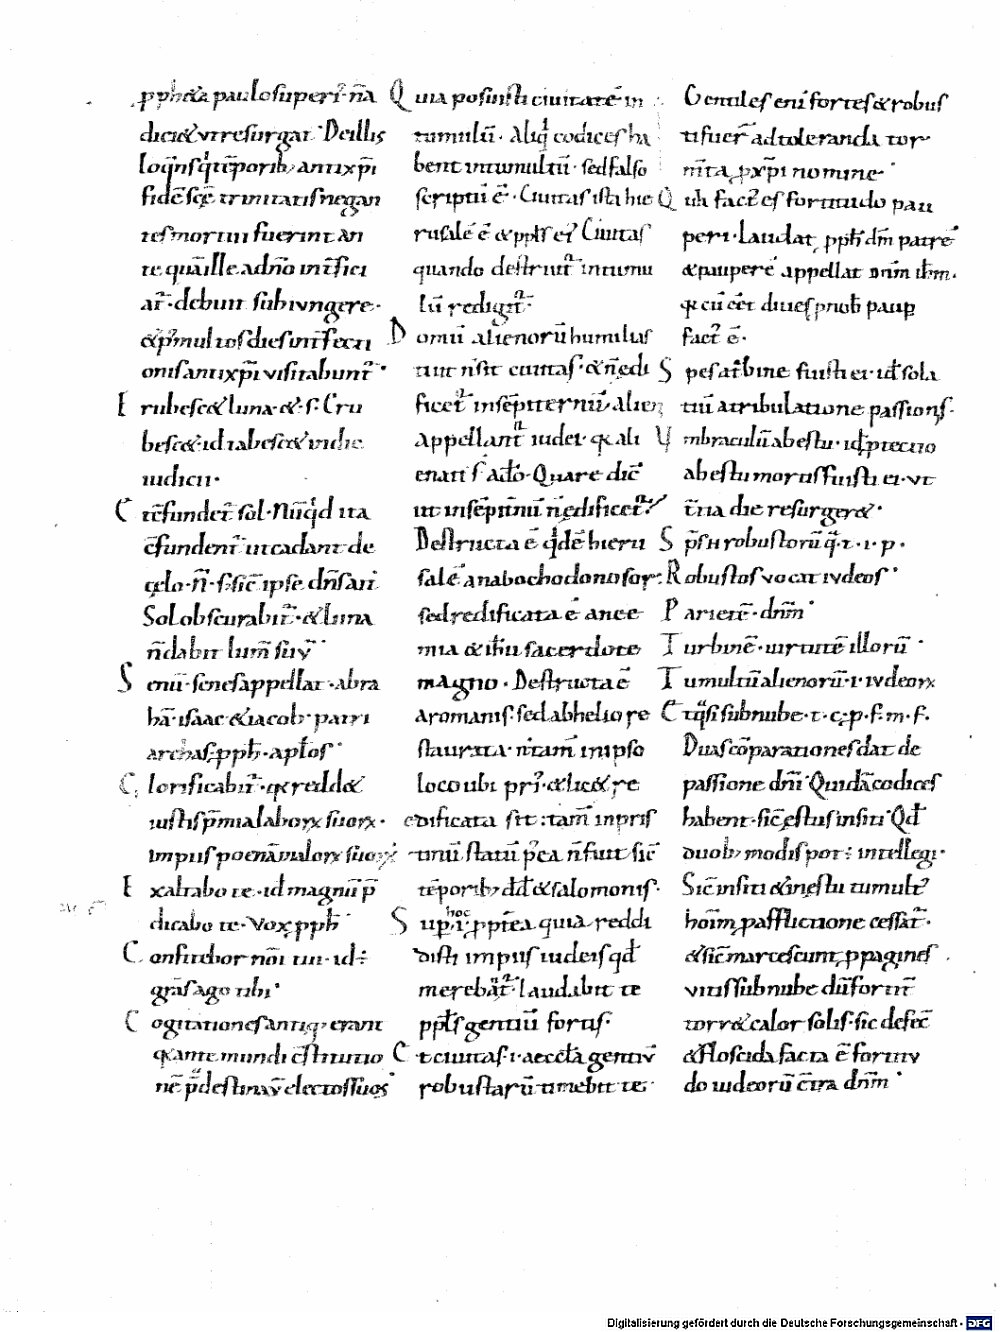 pph&a paulo superi᷒ n̄a
dici&ut resurgat. De illis
loq̄ns q̄ tēporib; antixp̄i
fidē scē trinitatis negan
tes mortui fuerint an
te quā ille adn̄o int̄fici
at᷒. debuit subiungere.
&p᷒ multos dies int̄fecti
onis antixp̄i visitabunt᷒.
Erubesc&luna.&.s. Cru
besc&.id tabesc&indie
iudicii.
Ct̄ēfundet᷒ sol. Nūq̄d ita
c̄fundent᷒ ut cadant de
cęlo. n̄. s; sic̄ ipse dn̄s ari
Sol obscurabit᷒.&luna
n̄ dabit lum̄ suū.
Senū. senes appellat. abra
hā. isaac &iacob. patri
archas. pph̄. apl̄os.
Glorificabit᷒. qr redd&
iustis p̄mia laborꝝ suorꝝ.
impiis poenā maloꝝ suorꝝ
Exaltabo te. id magnū p̄
dicabo te. Vox pph̄.
Confitebor nōi tui. id÷
grās ago tibi.
Cogitationes antiq; erant
q ante mundi c̄stitutio
nē p̄destinav̄ electos suos.
Quia posuisti ciuitatē in
tumulū. Aliq̄ codices ha
bent in tumultū. sed falso
scriptū ē. Ciuitas ista hie
rusalē ē &ppl̄s ei᷒. Ciuitas
quando destruit᷒ in tumu
lū redigit᷒.
Domū alienorū humilus
tiut n̄ sit ciuitas.&n̄ ędi
ficet᷒ in sēpiternū. Alien
appellant᷒ iudei. qr ali
enati s̄ a dō. Quare dic̄
ut in sēpit̄nū n̄ ędificet᷒?
Destructa ē q̄dē hieru
salē a nabochodonosor.
sed redificata ē a nee
mia &ih̄u sacerdote
magno. Destructa ē
a romanis. sed ab helio re
staurata. n̄ tam̄ in ipso
loco ubi pri᷒.&lic& re
edificata sit. tam̄ in pris
tinū statū p᷒ea n̄ fuit sic̄
tēporib; dd̄ &salomonis.
Sup. i. ppt̄ea quia reddi
hoc
disti impiis iudeis qd̄
mereban̄t᷒. laudabit te
ppl̄s gentiū fortis.
Ct ciuitas. i. aeccl̄a gentiū
robustarū timebit te.
Gentiles enī fortes&robus
ti fuer̄ ad toleranda tor
m̄ta p xp̄i nomine.
Quia fact᷒ es fortitudo pau
peri. Laudat pph̄ dm̄ patrē
&pauperē appellat dn̄m ih̄m.
qr cū eēt diues p nob̄ paup
fact᷒ ē.
Spes a t᷒bine fuisti ei. id̄ sola
tiū a tribulatione passionis.
Umbraculū ab estu. id̄ ptectio
ab estu mortis fuisti ei. ut
t̄tia die resurger&.
Sp̄s n̄ robustorū q̄. t. i. p.
Robustos vocat iudeos.
Parietē. dn̄m.
Turbinē. uirtutē illorū.
Tumultū alienorū. i. iudeorꝝ
Ct q̄si sub nube. t. c; p. f. m. f.
Duas cōparationes dat de
passione dn̄i. Quidā codices
habent. sic̄ ęstus in siti. Qd̄
duob; modis pot÷ intellegi.
Sic̄ in siti &in estu tumult᷒
hoīm p afflictione cessat᷒.
&sic̄ marcescunt p pagines
vitis sub nube dū fortit᷒
torr& calor solis. sic defec̄
&floscida facta ē fortitu
do iudeorū c̄tra dn̄m.
Digitalisierung gefördert durch die Deutsche Forschungsgemeinschaft - DFG